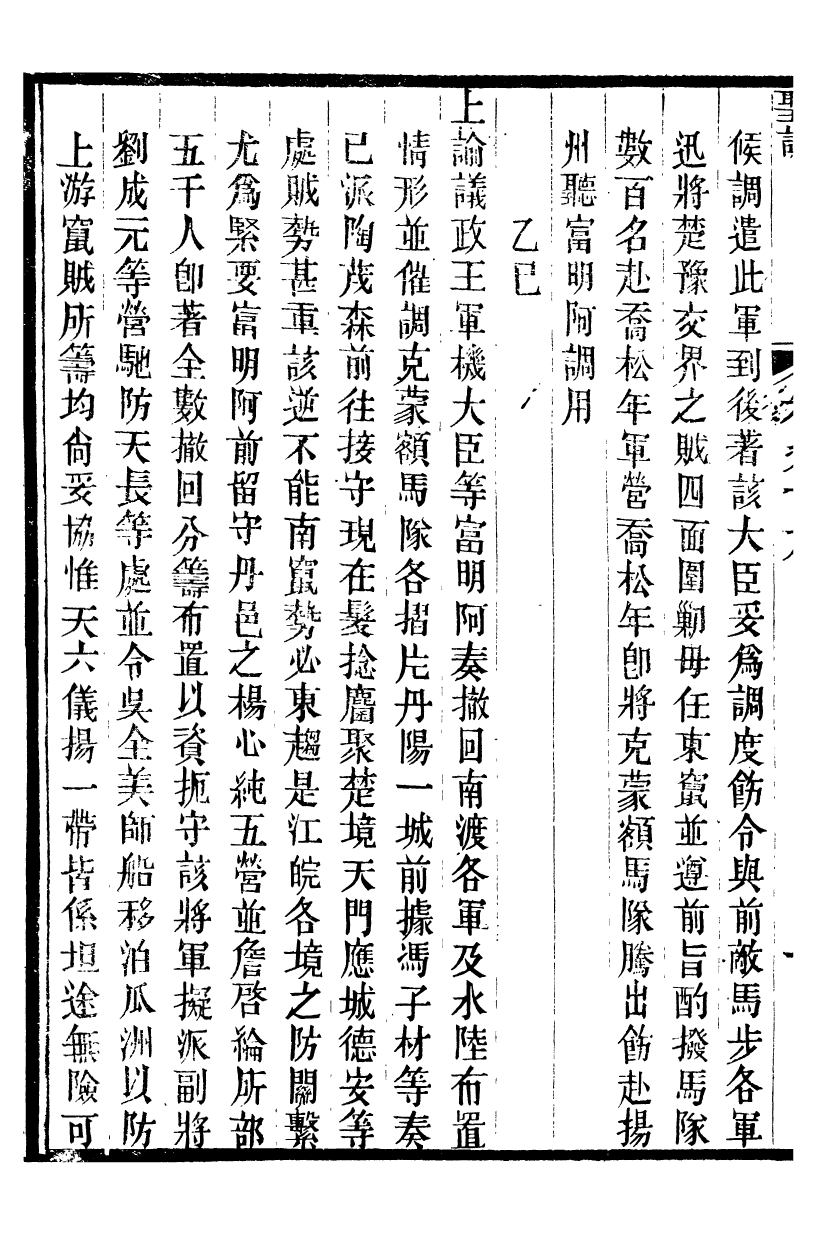 候調遣此軍到後著該大臣妥爲調度飭令與前敵馬步各軍
迅將楚豫交界之賊四面圍勦毋任東竄並遵前旨酌撥馬隊
數百名赴喬松年軍營喬松年卽將克蒙額馬隊騰出飭赴揚
州聽富明阿調用
乙巳
上諭議政王軍機大臣等富明阿奏撤回南渡各軍及水陸布置
情形並催調克蒙額馬隊各摺片丹陽一城前據馮子材等奏
已派陶茂森前往接守現在髮捻麕聚楚境天門應城德安等
處賊勢甚重該逆不能南竄勢必東趨是江皖各境之防關繫
尤爲緊要富明阿前留守丹邑之楊心純五營並詹啓綸所部
五千人卽著全數撤回分籌布置以資扼守該將軍擬派副將
劉成元等營馳防天長等處並令吳全美師船移泊瓜洲以防
上游竄賊所籌均尙妥協惟天六儀揚一帶皆係坦途無險可